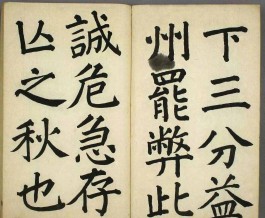 下三分益
州罷弊此
誠危急存
亾之秋也